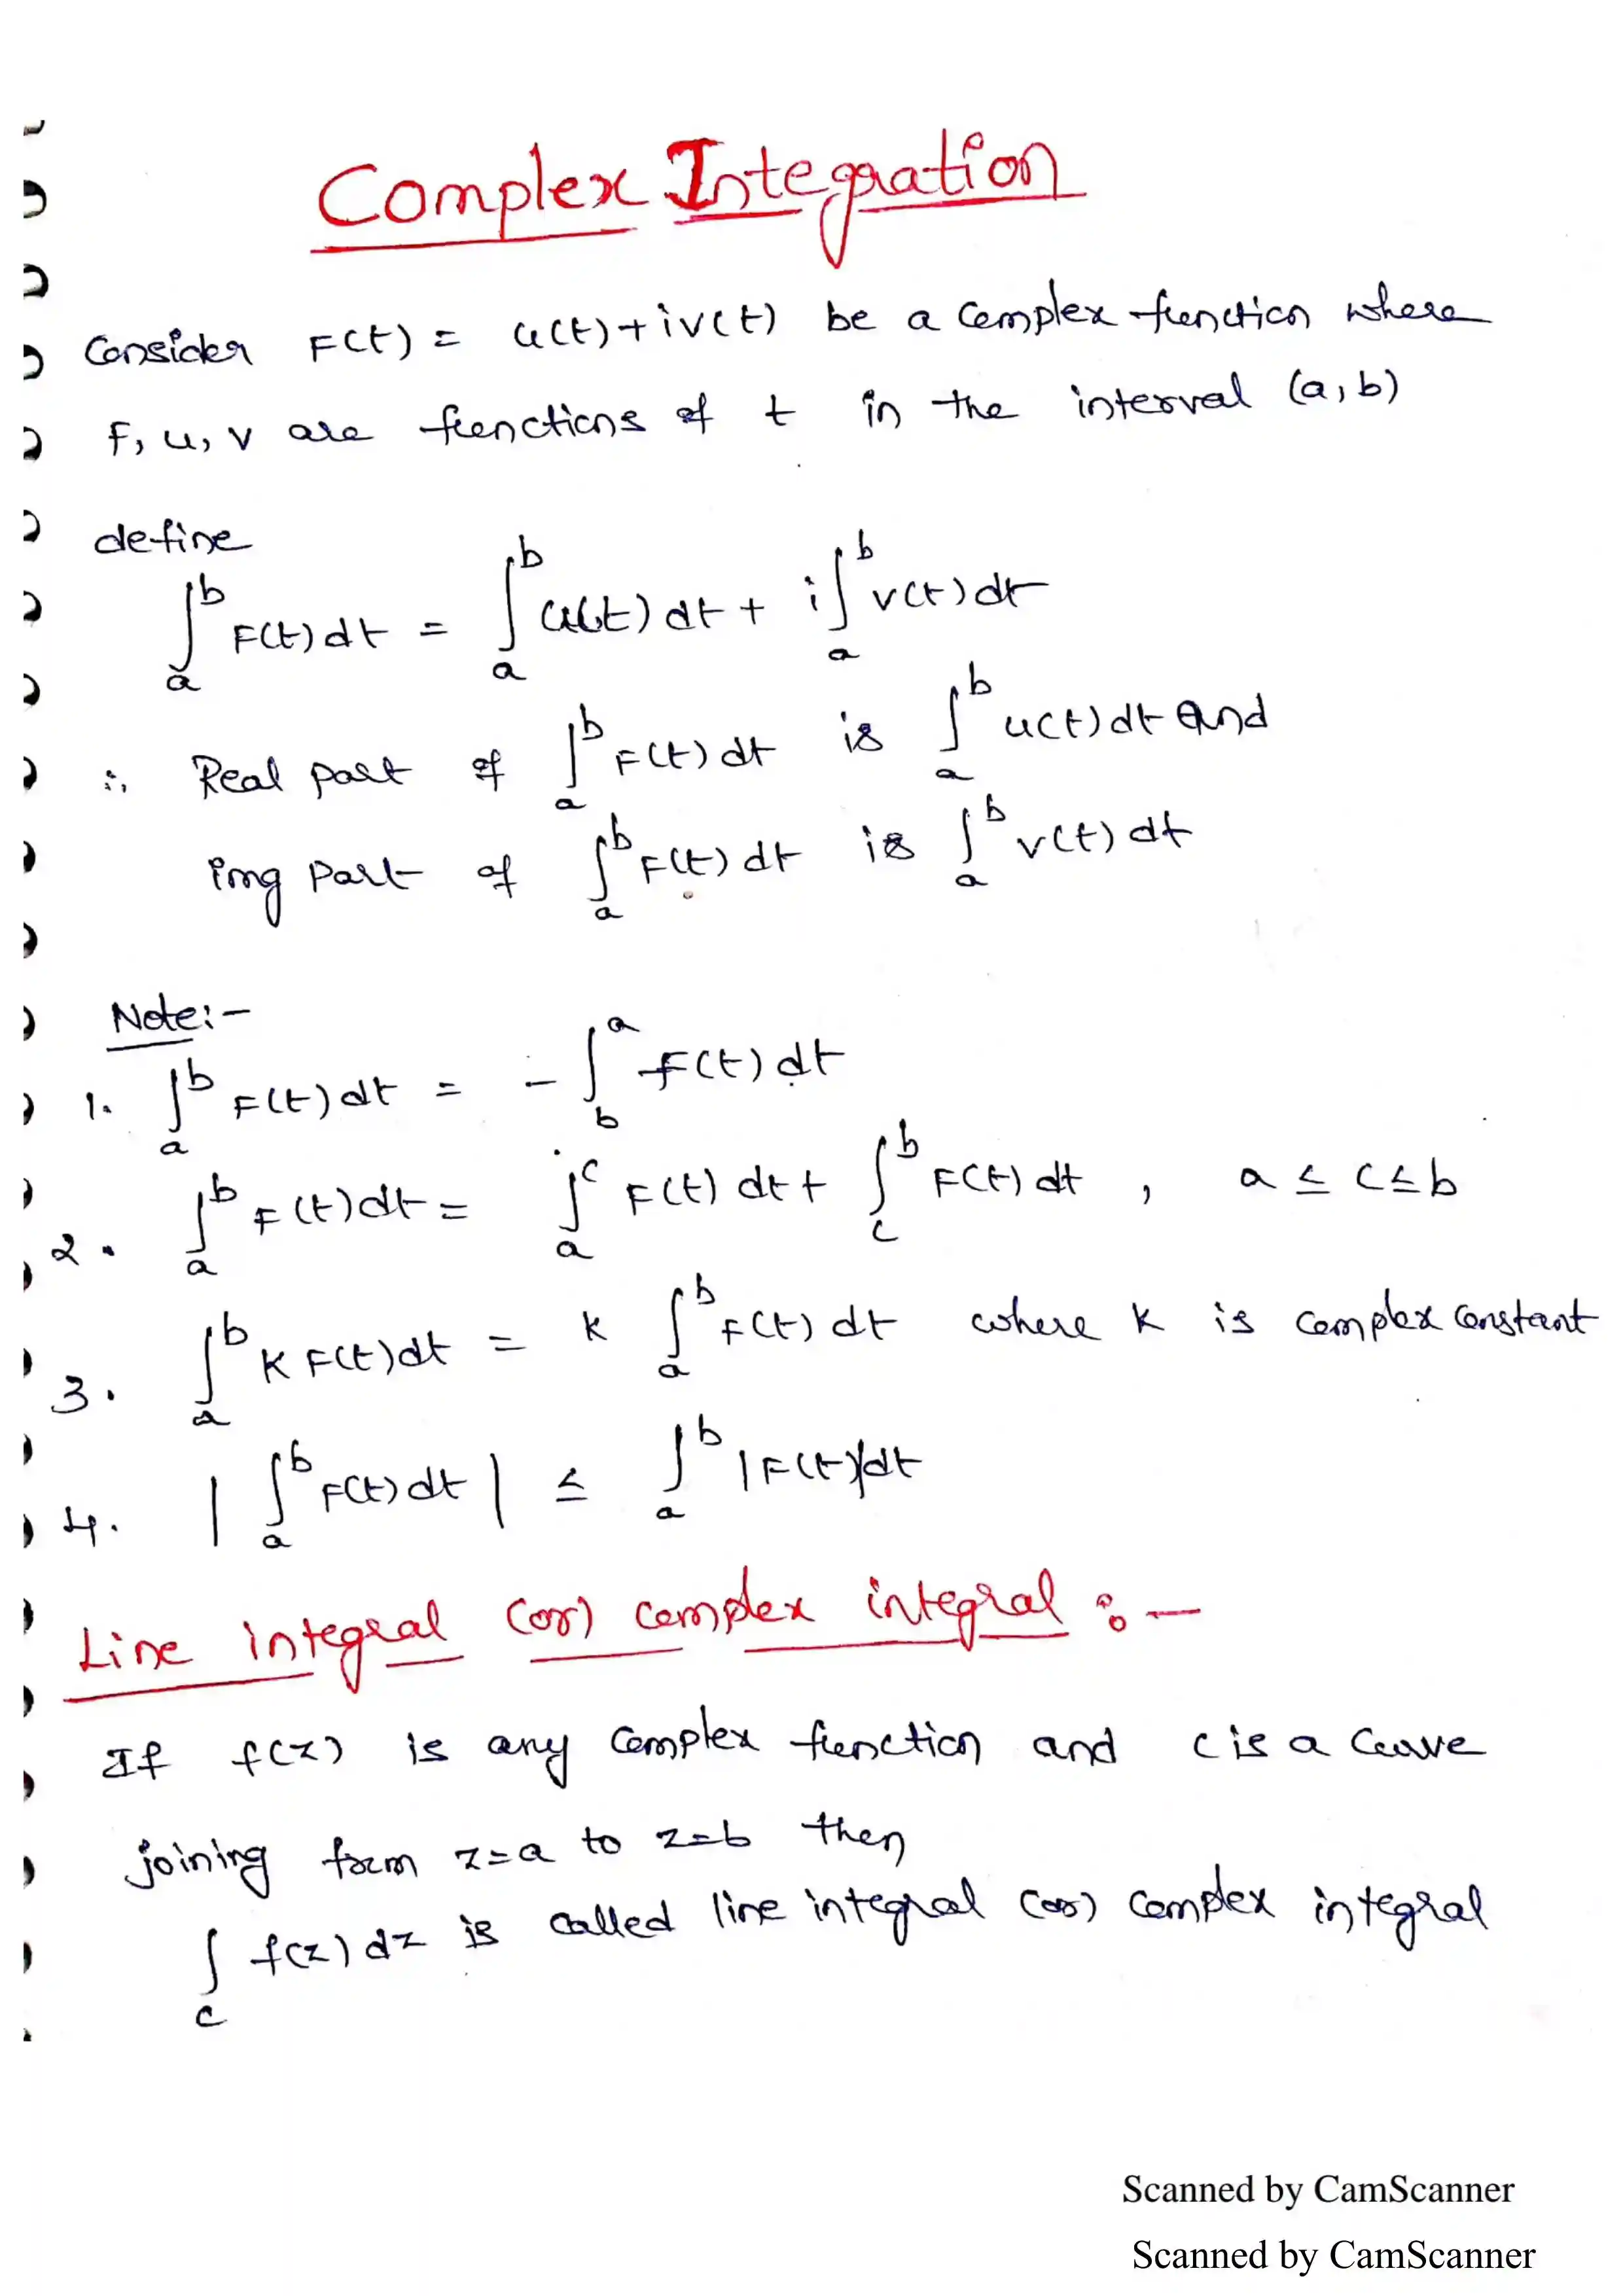 Complex Integration
Consider F(t) = u(t)+iv(t) be a complex function where
F, u, v are functions of t in the interval (a,b)
define
∫_a^b F(t) dt = ∫_a^b u(t) dt + i∫_a^b v(t) dt
∴ Real part of ∫_a^b F(t) dt is ∫_a^b u(t) dt and
img part of ∫_a^b F(t) dt is ∫_a^b v(t) dt
Note:-
1. ∫_a^b F(t) dt = - ∫_b^a F(t) dt
2. ∫_a^b F(t) dt = ∫_a^c F(t) dt + ∫_c^b F(t) dt , a ≤ c ≤ b
3. ∫_a^b K F(t) dt = K ∫_a^b F(t) dt where K is complex constant
4. | ∫_a^b F(t) dt | ≤ ∫_a^b |F(t)| dt
Line integral (or) complex integral :-
If f(z) is any complex function and c is a curve
joining form z=a to z=b then
∫_c f(z) dz is called line integral (or) complex integral
Scanned by CamScanner
Scanned by CamScanner